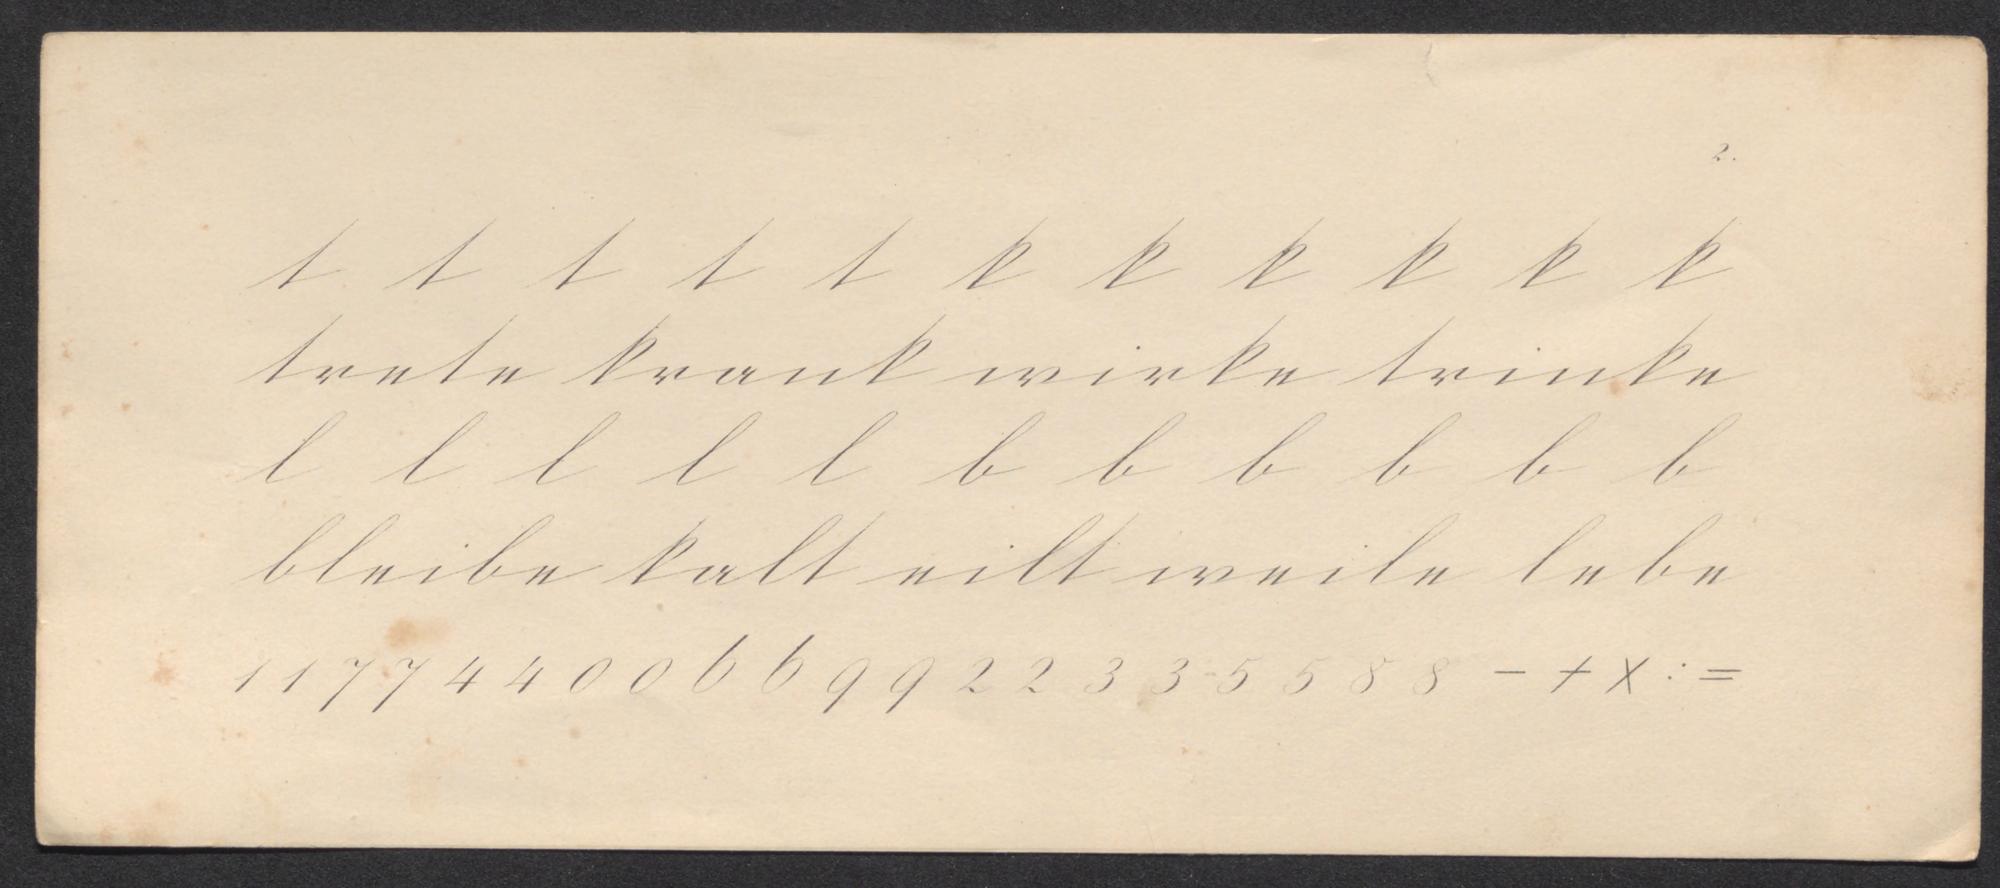 2.
t t t t t k k k k k k
trete krank wirke trinke
l l l l l b b b b b b
bleibe kalt eilt weile lebe
1 1 7 7 4 4 0 0 6 6 9 9 2 2 3 3 5 5 8 8 − + x : =